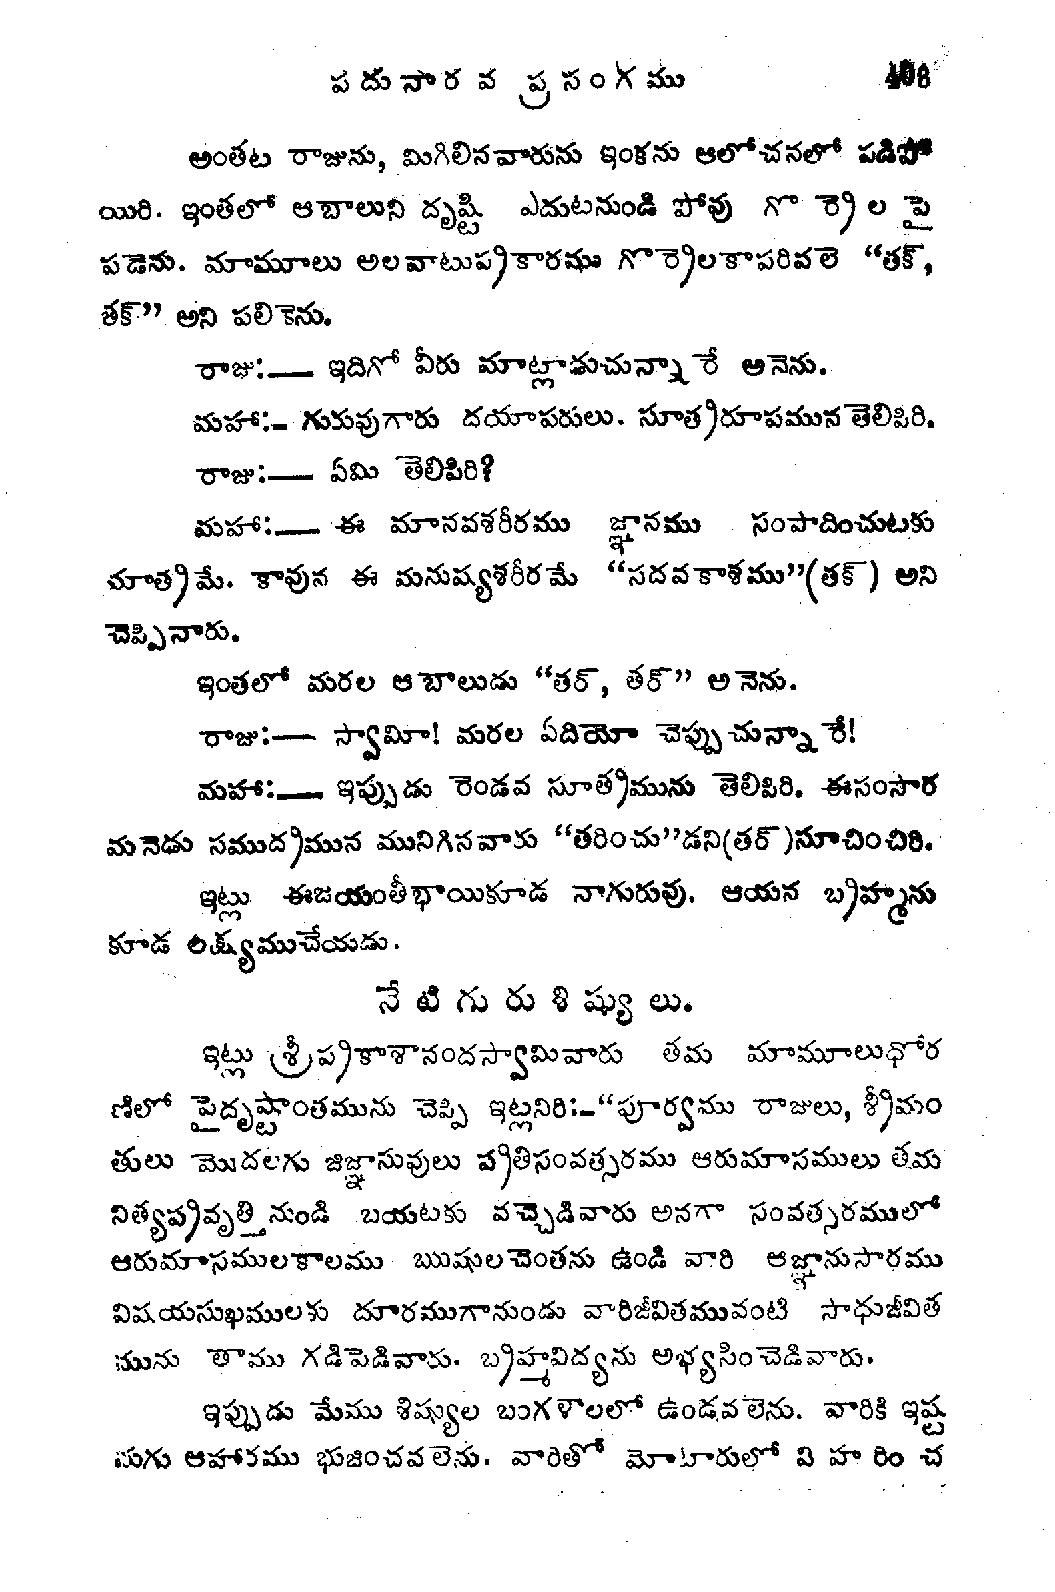 పదునారవ ప్రసంగము
అంతట రాజును, మిగిలినవారును ఇంకను ఆలోచనలో పడిపో
యిరి. ఇంతలో ఆబాలుని దృష్టి ఎదుటనుండి పోవు గొఱ్ఱెల పై
పడెను. మామూలు అలవాటుప్రకారము గొఱ్ఱెలకాపరివలె “తక్,
తక్” అని పలికెను.
రాజు:— ఇదిగో వీరు మాట్లాడుచున్నారే అనెను.
మహా:- గురువుగారు దయాపరులు. సూత్రరూపమున తెలిపిరి.
రాజు:— ఏమి తెలిపిరి?
మహా:— ఈ మానవశరీరము జ్ఞానము సంపాదించుటకు
మాత్రమే. కావున ఈ మనుష్యశరీరమే “సదవకాశము”(తక్) అని
చెప్పినారు.
ఇంతలో మరల ఆబాలుడు “తర్, తర్” అనెను.
రాజు:— స్వామీ! మరల ఏదియో చెప్పుచున్నారే!
మహా:— ఇప్పుడు రెండవ సూత్రమును తెలిపిరి. ఈసంసార
మనెడు సముద్రమున మునిగినవారు “తరించు”డని(తర్)సూచించిరి.
ఇట్లు ఈజయంతీభాయికూడ నాగురువు. ఆయన బ్రహ్మను
కూడ లక్ష్యముచేయడు.
నేటి గురుశిష్యులు.
ఇట్లు శ్రీప్రకాశానందస్వామివారు తమ మామూలుధోర
ణిలో పైదృష్టాంతమును చెప్పి ఇట్లనిరి:-“పూర్వము రాజులు, శ్రీమం
తులు మొదలగు జిజ్ఞాసువులు ప్రతిసంవత్సరము ఆరుమాసములు తమ
నిత్యప్రవృత్తినుండి బయటకు వచ్చెడివారు అనగా సంవత్సరములో
ఆరుమాసములకాలము ఋషులచెంతను ఉండి వారి ఆజ్ఞానుసారము
విషయసుఖములకు దూరముగానుండు వారిజీవితమువంటి సాధుజీవిత
మును తాము గడిపెడివారు. బ్రహ్మవిద్యను అభ్యసించెడివారు.
ఇప్పుడు మేము శిష్యుల బంగళాలలో ఉండవలెను. వారికి ఇష్ట
మగు ఆహారము భుజించవలెను. వారితో మోటారులో విహరించ